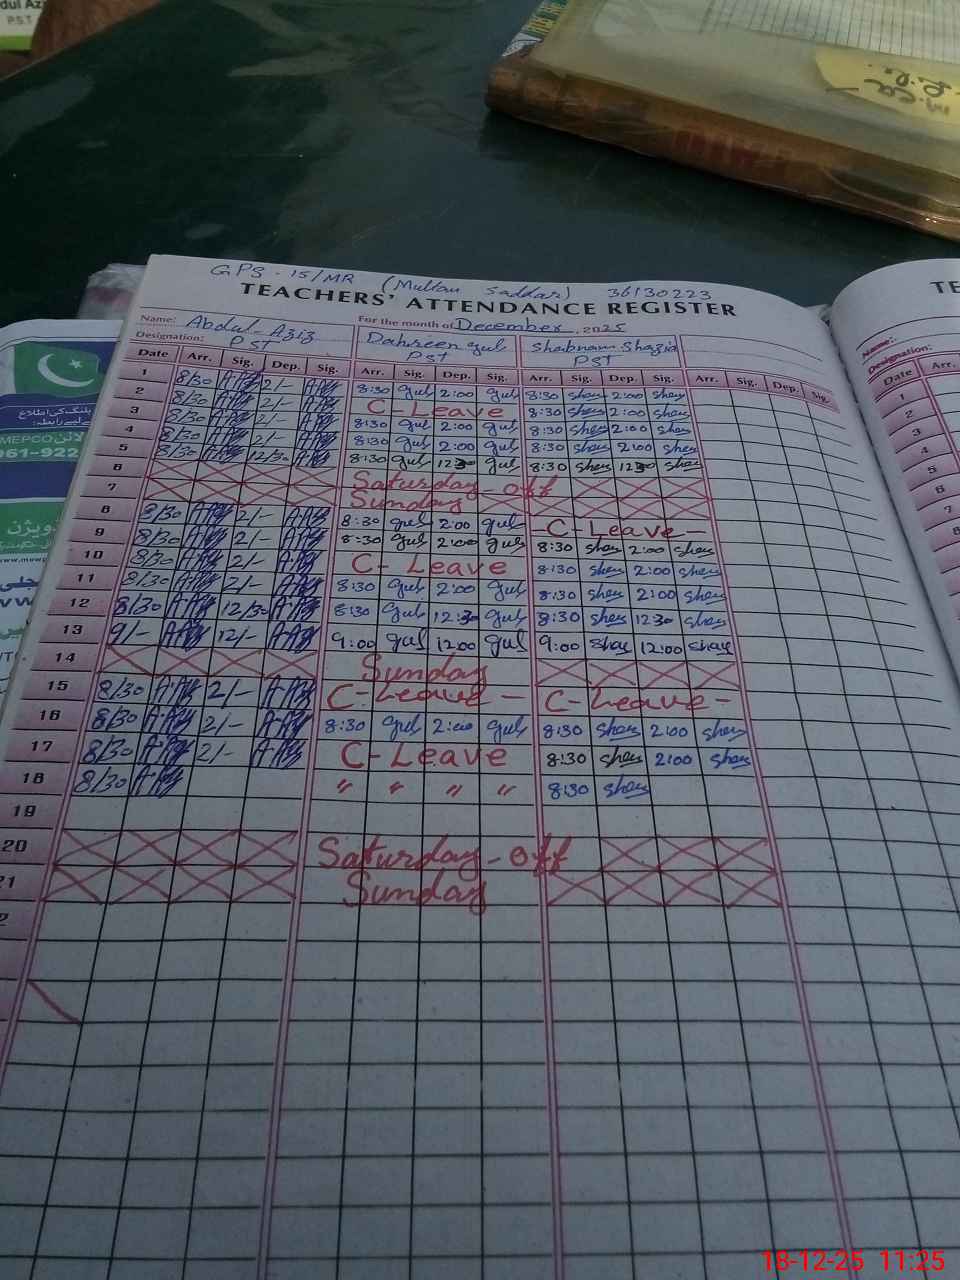 dul Az
P.S.T
GPS-15/MR (Multan Saddar) 36130223
TEACHERS' ATTENDANCE REGISTER
Name: Abdul-Aziz For the month of December, 2025
Designation: PST Dahreen Gul PST Shabnam Shazia PST
Date Arr. Sig. Dep. Sig. Arr. Sig. Dep. Sig. Arr. Sig. Dep. Sig. Arr. Sig. Dep. Sig.
1 8/30 2/- 8:30 gul 2:00 gul 8:30 shay 2:00 shay
2 8/30 2/- C-Leave 8:30 shay 2:00 shay
3 8/30 2/- 8:30 gul 2:00 gul 8:30 shay 2:00 shay
4 8/30 2/- 8:30 gul 2:00 gul 8:30 shay 2:00 shay
5 8/30 12/30 8:30 gul 12:30 gul 8:30 shay 12:30 shay
6 Saturday-off
7 Sunday
8 8/30 2/- 8:30 gul 2:00 gul -C-Leave-
9 8/30 2/- 8:30 gul 2:00 gul 8:30 shay 2:00 shay
10 8/30 2/- C-Leave 8:30 shay 2:00 shay
11 8/30 2/- 8:30 gul 2:00 gul 8:30 shay 2:00 shay
12 8/30 12/30 8:30 gul 12:30 gul 8:30 shay 12:30 shay
13 9/- 12/- 9:00 gul 12:00 gul 9:00 shay 12:00 shay
14 Sunday
15 8/30 2/- C-Leave - C-Leave-
16 8/30 2/- 8:30 gul 2:00 gul 8:30 shay 2:00 shay
17 8/30 2/- C-Leave 8:30 shay 2:00 shay
18 8/30 " " " " 8:30 shay
19
20 Saturday-off
21 Sunday
2
TE
Name:
Designation:
Date Arr.
1
2
3
4
5
6
7
8
9
10
11
12
13
MEPCO
061-922
18-12-25 11:25